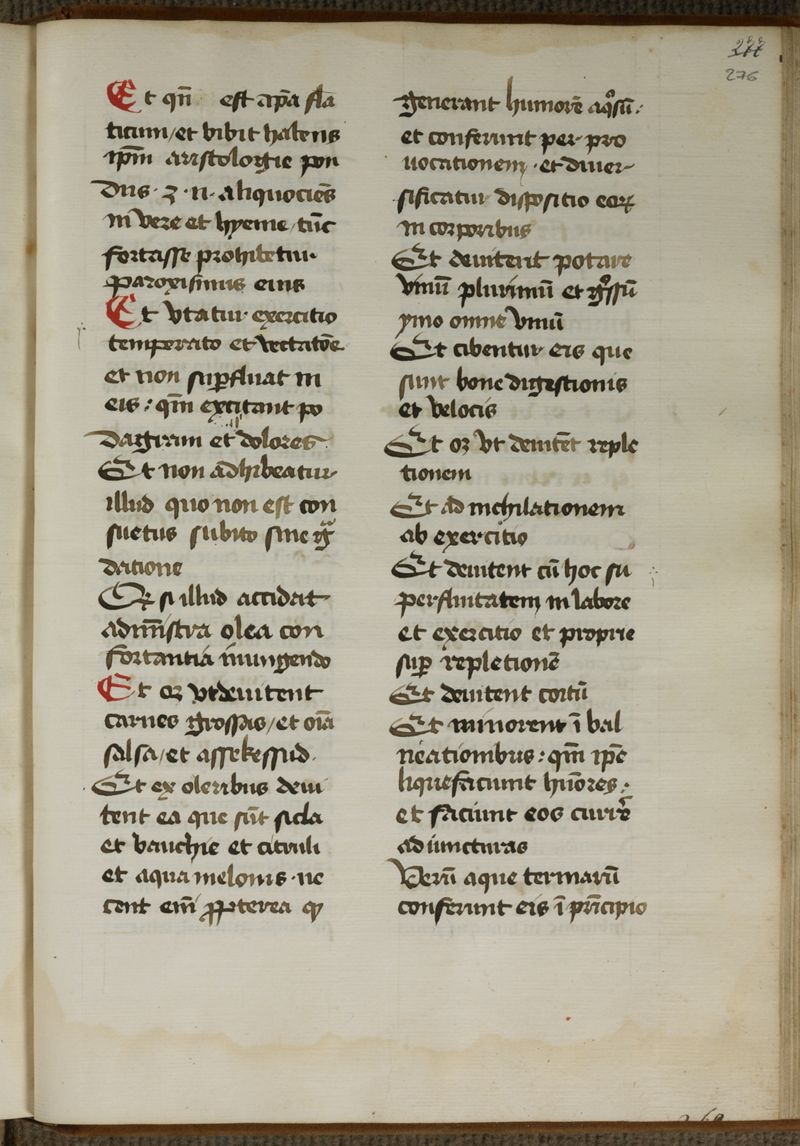 277
276
Et qn̄ est ap̄a fla
ticum / et bibit habens
ip̄m aristologie pon
dus · ʒ · ii · aliquociēs
in vere et hyeme / tūc
fortasse prohibetur ·
paroxismus eius
Et vtatur exercitio
temperato et vectatōe
et non sup̄fluat in
eis : qm̄ excitant po
dagram et dolores
Et non adhibeatur
illud quo non est con
suetus subito sine gͣ
datione
Et si illud accidat
admīstra olea con
fortantia inungendo
Et oꝫ vt deuitent
carnes grossas / et oīa
salsa / et assekessud ·
Et ex oleribus deui
tent ea que sūt sicla
et bauchie et citruli
et aqua melonis · ne
cent em̄ ꝓpterea qꝫ
generant humorē aqͦsū :
et conferunt per pro
uocationem · et diuer
sificatur dispositio eoꝝ
in corporibus
Et deuitent potare
vinū plurimū et gͦssū
ymo omne vinū
Et cibentur eis que
sunt bone digestionis
et velocis
Et oꝫ vt deuitēt reple
tionem
Et ad inchilationem
ab exercitio
Et deuitent cū hoc su
perfluitatem in labore
et exercitio et proprie
sup̄ repletionē
Et deuitent coitū
Et minorent ī bal
neationibus : qm̄ ip̄e
liquefaciunt hūores :
et faciunt eos currē̄
ad iuncturas
Verū aque termarū
conferunt eis ī prīcipio